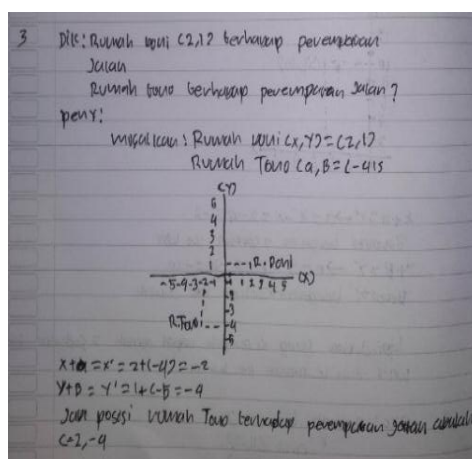 3 Dik: Rumah Doni (2,1) terhadap perempatan
Jalan
Rumah tono terhadap perempatan Jalan ?
peny:
misalkan : Rumah Doni (x,Y) = (2,1)
Rumah Tono (a,B = (-4,5
(Y)
5
4
3
2
1 ---, R. Doni
-5-4-3-2-1 1 2 3 4 5 (X)
-2
-3
R.Tono -4
-5
X+a = x' = 2+(-4) = -2
Y+b = Y' = 1+(-5 = -4
Jadi posisi rumah Tono terhadap perempatan Jalan adalah
(-2,-4